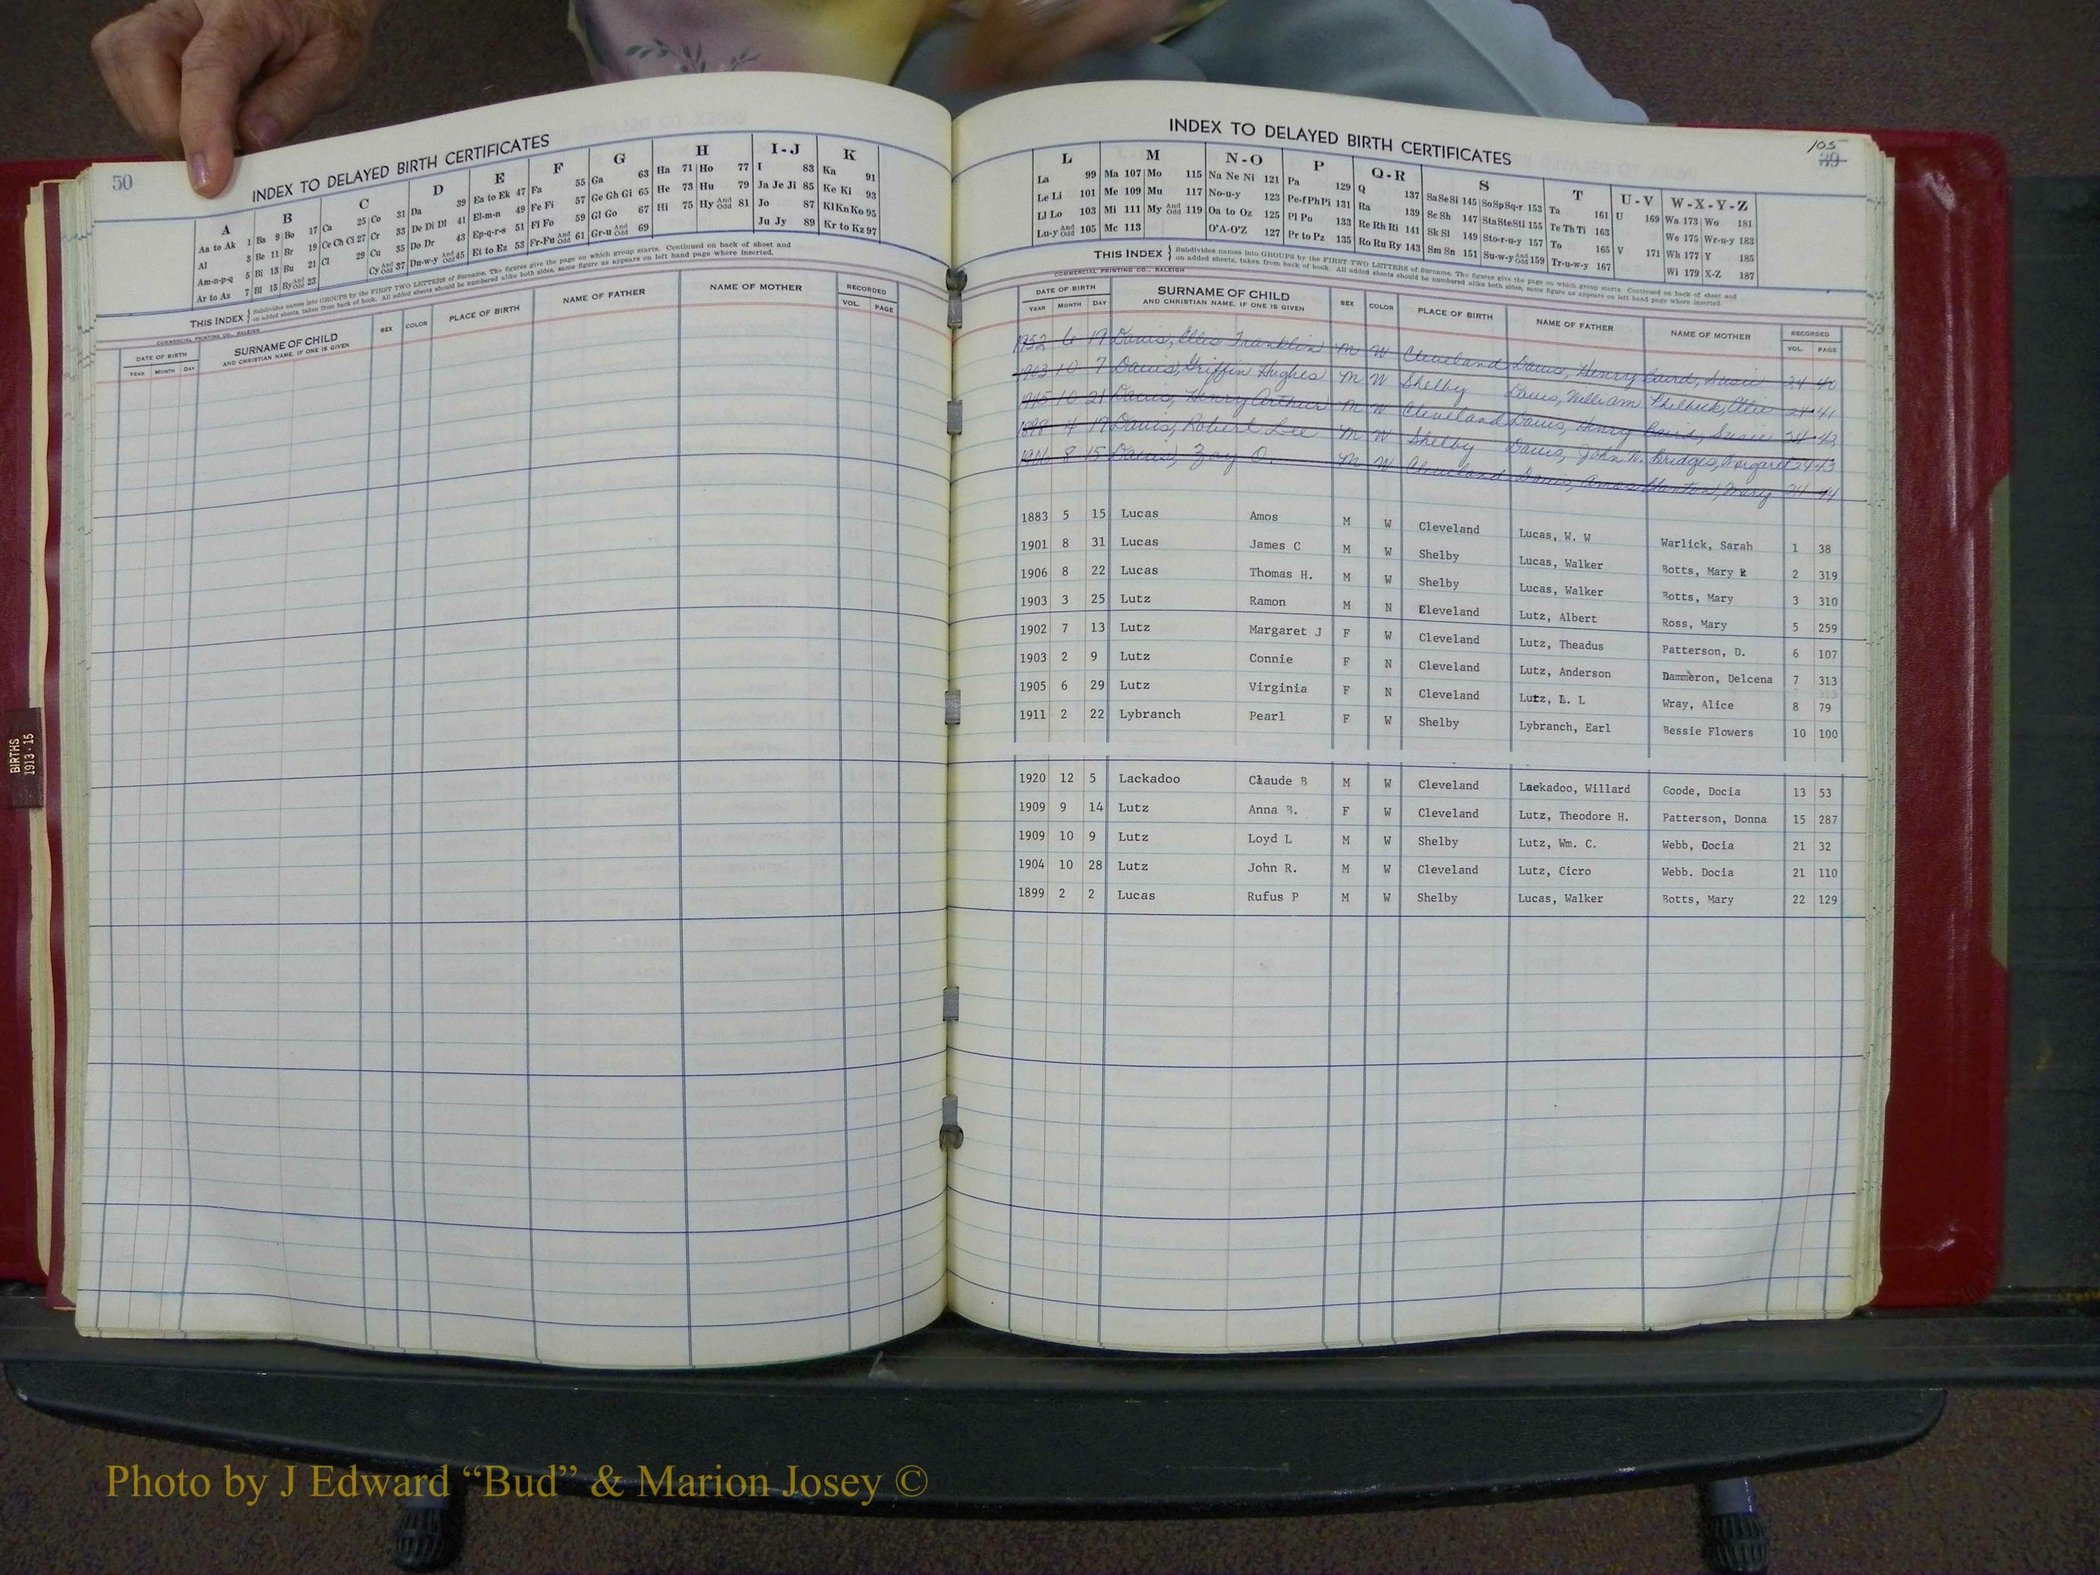 50
INDEX TO DELAYED BIRTH CERTIFICATES
A B C D E F G H I-J K
Aa to Ak 1 Ba 9 Bo 17 Ca 25 Co 31 Da 39 Ea to Ek 47 Fa 55 Ga 63 Ha 71 Ho 77 I 83 Ka 91
Al 3 Be 11 Br 19 Ce Ch Ci 27 Cr 33 De Di Dl 41 El-m-n 49 Fe Fi 57 Ge Gh Gi 65 He 73 Hu 79 Ja Je Ji 85 Ke Ki 93
Am-n-p-q 5 Bi 13 Bu 21 Cl 29 Cu 35 Do Dr 43 Ep-q-r-s 51 Fl Fo 59 Gl Go 67 Hi 75 Hy And Odd 81 Jo 87 Kl Kn Ko 95
Ar to Az 7 Bl 15 By And Odd 23 Cy And Odd 37 Du-w-y And Odd 45 Et to Ez 53 Fr-Fu And Odd 61 Gr-u And Odd 69 Ju Jy 89 Kr to Kz 97
THIS INDEX } Subdivides names into GROUPS by the FIRST TWO LETTERS of Surname. The figures give the page on which group starts. Continued on back of sheet and
on added sheets, taken from back of book. All added sheets should be numbered alike both sides, same figure as appears on left hand page where inserted.
COMMERCIAL PRINTING CO., RALEIGH
DATE OF BIRTH SURNAME OF CHILD SEX COLOR PLACE OF BIRTH NAME OF FATHER NAME OF MOTHER RECORDED
YEAR MONTH DAY AND CHRISTIAN NAME, IF ONE IS GIVEN VOL. PAGE
INDEX TO DELAYED BIRTH CERTIFICATES
105
39
L M N-O P Q-R S T U-V W-X-Y-Z
La 99 Ma 107 Mo 115 Na Ne Ni 121 Pa 129 Q 137 Sa Se Si 145 So Sp Sq-r 153 Ta 161 U 169 Wa 173 Wo 181
Le Li 101 Me 109 Mu 117 No-u-y 123 Pe-f Ph Pi 131 Ra 139 Sc Sh 147 Sta Ste Sti 155 Te Th Ti 163 We 175 Wr-u-y 183
Ll Lo 103 Mi 111 My And Odd 119 Oa to Oz 125 Pl Po 133 Re Rh Ri 141 Sk Sl 149 Sto-r-u-y 157 To 165 V 171 Wh 177 Y 185
Lu-y And Odd 105 Mc 113 O'A-O'Z 127 Pr to Pz 135 Ro Ru Ry 143 Sm Sn 151 Su-w-y And Odd 159 Tr-u-w-y 167 Wi 179 X-Z 187
THIS INDEX } Subdivides names into GROUPS by the FIRST TWO LETTERS of Surname. The figures give the page on which group starts. Continued on back of sheet and
on added sheets, taken from back of book. All added sheets should be numbered alike both sides, same figure as appears on left hand page where inserted.
COMMERCIAL PRINTING CO., RALEIGH
DATE OF BIRTH SURNAME OF CHILD SEX COLOR PLACE OF BIRTH NAME OF FATHER NAME OF MOTHER RECORDED
YEAR MONTH DAY AND CHRISTIAN NAME, IF ONE IS GIVEN VOL. PAGE
6 19 Davis, Ollis Franklin M W Cleveland Davis, Henry Baird, Susie 24 40
1903 10 7 Davis, Griffin Hughes M W Shelby Davis, William Philbeck, Ollie 24 41
10 21 Davis, Henry Arthur M W Cleveland Davis, Henry Baird, Susie 24
1898 4 19 Davis, Robert Lee M W Shelby Davis, John W. Bridges, Margaret 24 43
8 15 Davis, Zay O. M W Cleveland Davis, Amos Mary 24 44
1883 5 15 Lucas Amos M W Cleveland Lucas, W. W Warlick, Sarah 1 38
1901 8 31 Lucas James C M W Shelby Lucas, Walker Botts, Mary E 2 319
1906 8 22 Lucas Thomas H. M W Shelby Lucas, Walker Botts, Mary 3 310
1903 3 25 Lutz Ramon M N Cleveland Lutz, Albert Ross, Mary 5 259
1902 7 13 Lutz Margaret J F W Cleveland Lutz, Theadus Patterson, D. 6 107
1903 2 9 Lutz Connie F N Cleveland Lutz, Anderson Dameron, Delcena 7 313
1905 6 29 Lutz Virginia F N Cleveland Lutz, L. L Wray, Alice 8 79
1911 2 22 Lybranch Pearl F W Shelby Lybranch, Earl Bessie Flowers 10 100
1920 12 5 Lackadoo Claude B M W Cleveland Lackadoo, Willard Goode, Docia 13 53
1909 9 14 Lutz Anna B. F W Cleveland Lutz, Theodore H. Patterson, Donna 15 287
1909 10 9 Lutz Loyd L M W Shelby Lutz, Wm. C. Webb, Docia 21 32
1904 10 28 Lutz John R. M W Cleveland Lutz, Cicro Webb. Docia 21 110
1899 2 2 Lucas Rufus P M W Shelby Lucas, Walker Botts, Mary 22 129
BIRTHS
1913-15
Photo by J Edward “Bud” & Marion Josey ©